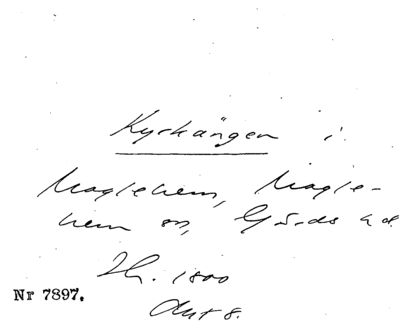 Kyrkängen i
Maglehem, Magle-
hem sn, Gärds hd
Lh. 1800
Akt 8.
Nr 7897.